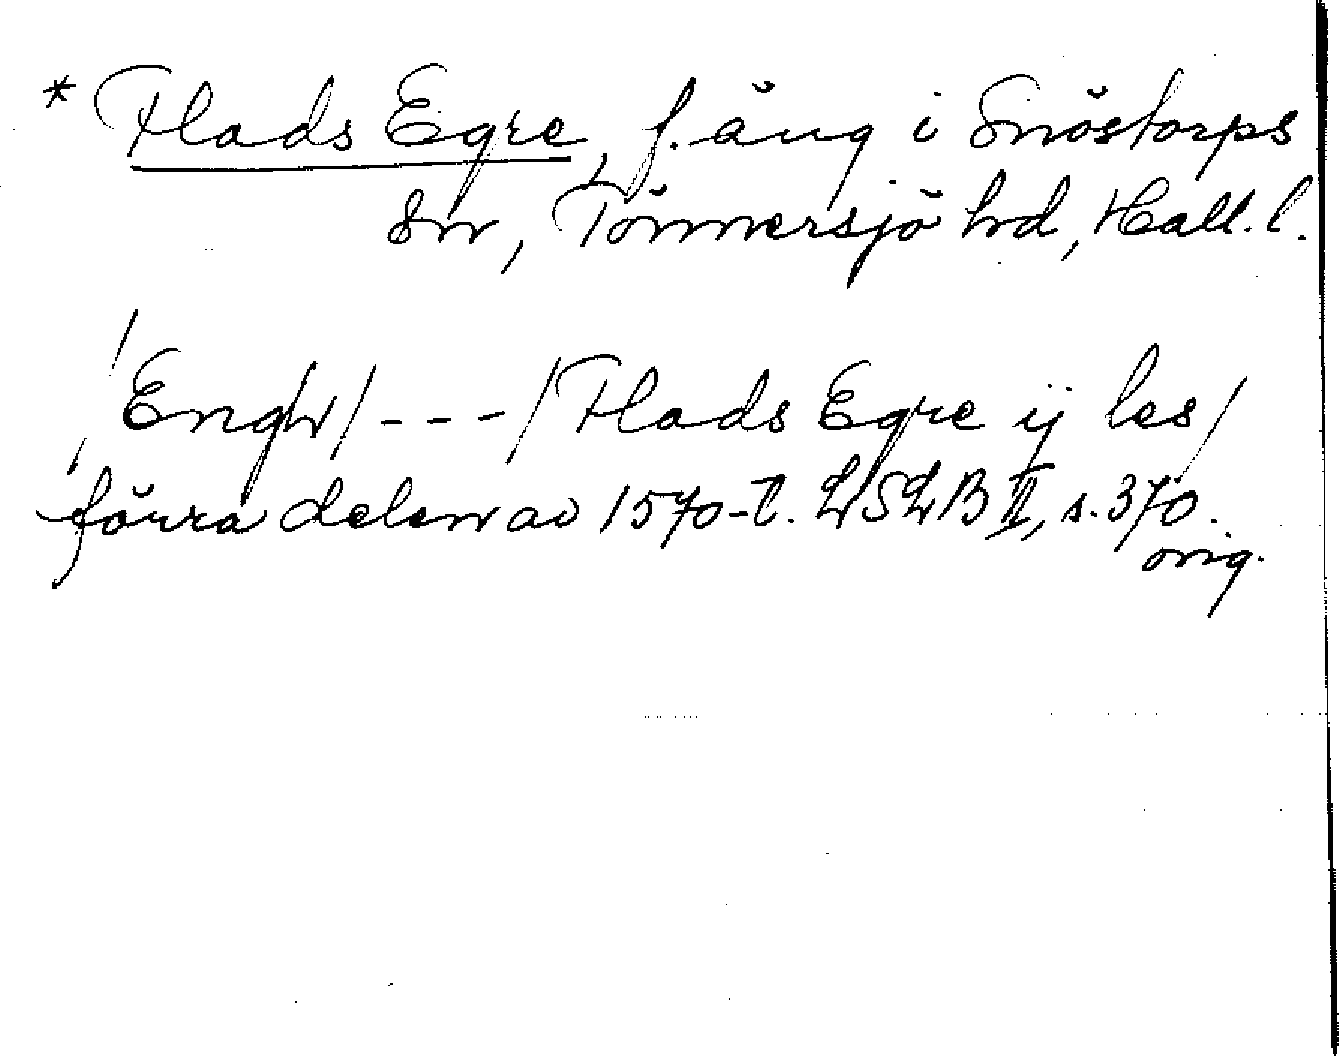 * Flads Egre, f. äng i Snöstorps
sn, Tönnersjö hd, Hall. l.
/Engh/ - - - /Flads Egre ij les/
förra delen av 1570-t. LSLB II, s. 370.
orig.